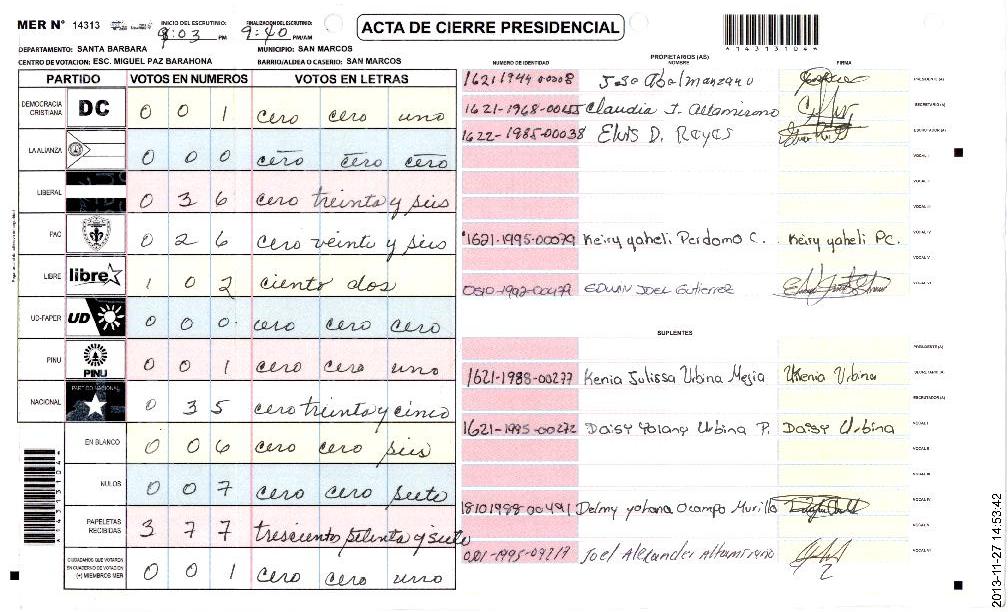 MER Nº 14313
INICIO DEL ESCRUTINIO: 9:03 PM
FINALIZACION DEL ESCRUTINIO: 9:40 PM/AM
ACTA DE CIERRE PRESIDENCIAL
A14313104
DEPARTAMENTO: SANTA BARBARA
MUNICIPIO: SAN MARCOS
CENTRO DE VOTACION: ESC. MIGUEL PAZ BARAHONA
BARRIO/ALDEA O CASERIO: SAN MARCOS
PARTIDO VOTOS EN NUMEROS VOTOS EN LETRAS
DEMOCRACIA CRISTIANA DC 0 0 1 cero cero uno
LA ALIANZA 0 0 0 cero cero cero
LIBERAL 0 3 6 cero treinta y seis
PAC 0 2 6 cero veinte y seis
LIBRE libre 1 0 2 ciento dos
UD-FAPER UD 0 0 0 cero cero cero
PINU PINU 0 0 1 cero cero uno
NACIONAL PARTIDO NACIONAL 0 3 5 cero treinta y cinco
EN BLANCO 0 0 6 cero cero seis
NULOS 0 0 7 cero cero siete
PAPELETAS RECIBIDAS 3 7 7 trescientos setenta y siete
CIUDADANOS QUE VOTARON EN CUADERNO DE VOTACION (+) MIEMBROS MER 0 0 1 cero cero uno
PROPIETARIOS (AS)
NUMERO DE IDENTIDAD NOMBRE FIRMA
1621 1944 00008 PRESIDENTE (A)
1621-1968-00255 Claudia J. Altamirano SECRETARIO (A)
1622-1985-00038 Elvis D. Reyes ESCRUTADOR (A)
VOCAL I
VOCAL II
VOCAL III
1621-1995-00079 Keiry yaheli Perdomo C. Keiry yaheli PC. VOCAL IV
VOCAL V
EDWIN JOEL Gutierrez VOCAL VI
SUPLENTES
PRESIDENTE (A)
1621-1988-00277 Kenia Julissa Urbina Mejia Kenia Urbina SECRETARIO (A)
ESCRUTADOR (A)
1621-1995-00272 Daisy Yolany Urbina P. Daisy Urbina VOCAL I
VOCAL II
VOCAL III
18101988-00491 Delmy yohana Ocampo Murillo VOCAL IV
VOCAL V
Joel Alexander Altamirano VOCAL VI
A14313104
2013-11-27 14:53:42